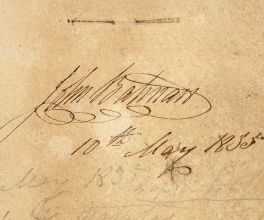 John Batman
10th May 1835
May 1835